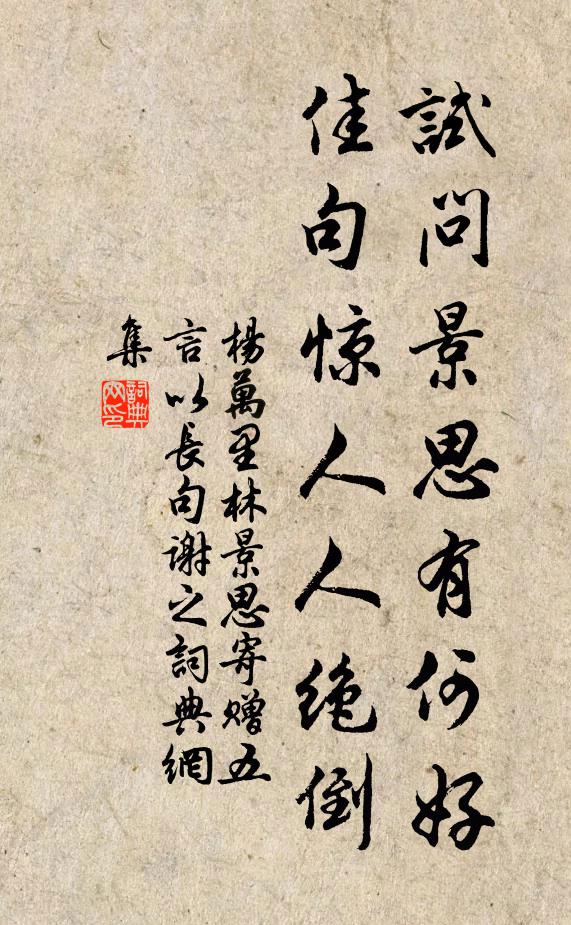 試問景思有何好
佳句惊人人絶倒
楊萬里林景思寄贈五
言以長句谢之詞典網
集
詞典
网印